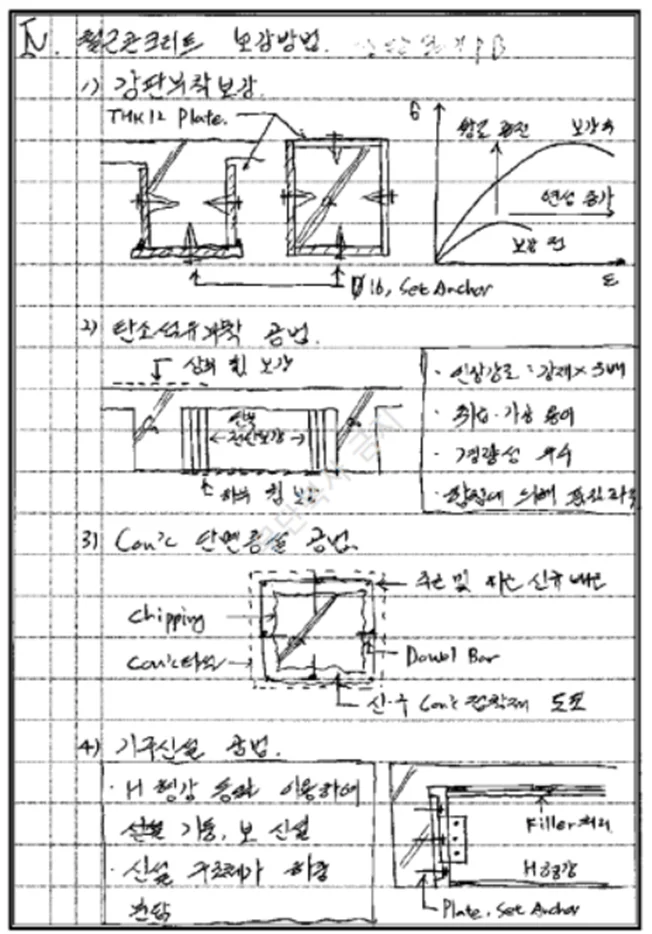 Ⅳ. 철근콘크리트 보강방법.
1) 강판부착보강.
THK12 Plate.
σ
강도 증진
보강 후
연성 증가
보강 전
ε
Ø16, Set Anchor
2) 탄소섬유부착 공법.
상부 휨 보강
단부
←전단보강→
하부 휨 보강
· 인장강도 : 강재×
· 취급·가공 용이
· 경량성 우수
3) Con'c 단면증설 공법.
주근 및 띠근 신규배근
Chipping
Con'c타설
Dowel Bar
신·구 Con'c 접착제 도포
4) 기구신설 공법.
· H형강 등을 이용하여
신설 기둥, 보 신설
· 신설 구조체가 하중
분담
Filler처리
H형강
Plate, Set Anchor
무단복사 금지